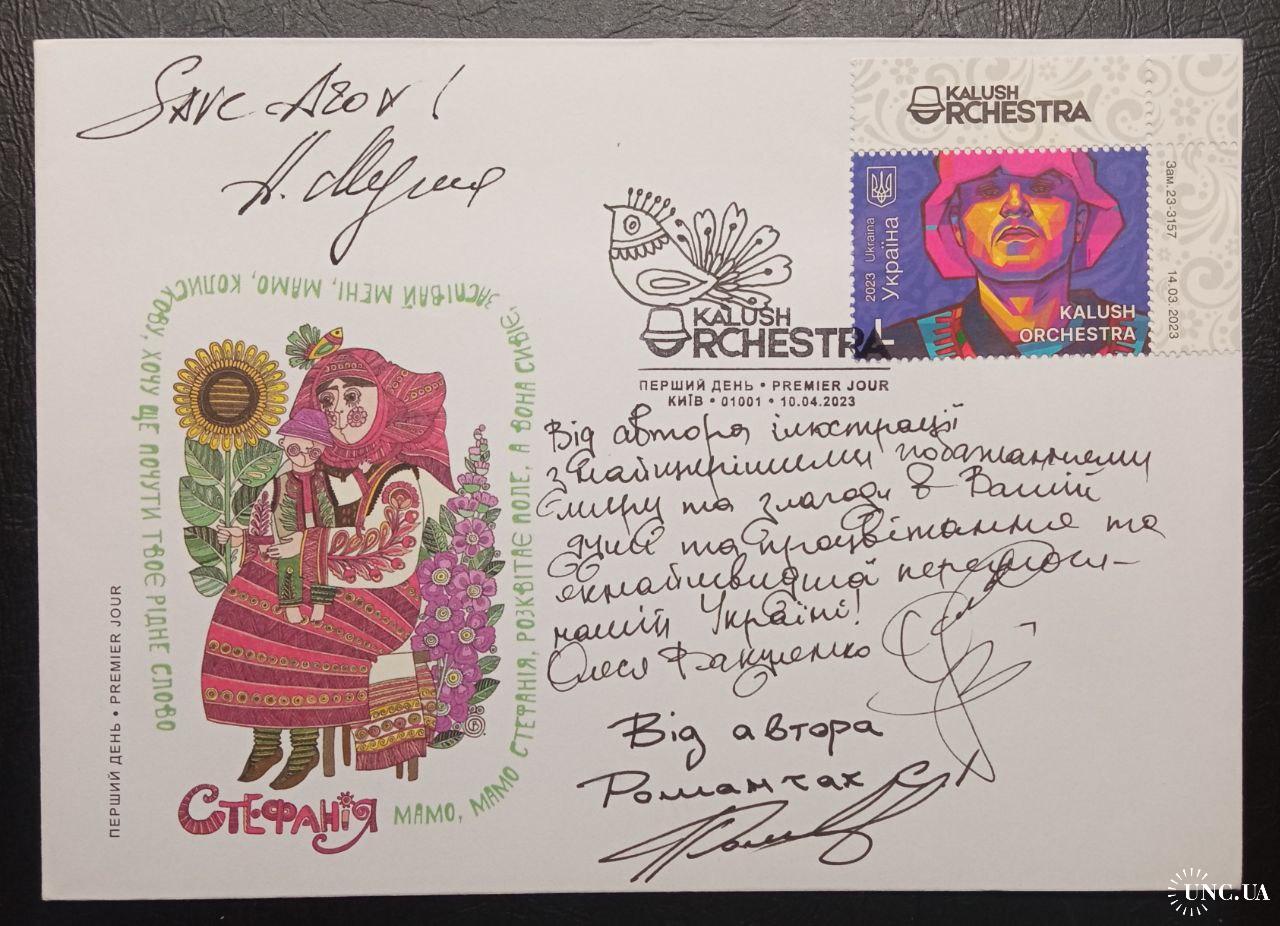 SAVE AZOV!
KALUSH
ORCHESTRA
Зам. 23-3157 14.03.2023
2023 Ukraina
Україна
KALUSH
ORCHESTRA
KALUSH
ORCHESTRA
ПЕРШИЙ ДЕНЬ • PREMIER JOUR
КИЇВ • 01001 • 10.04.2023
МАМО, МАМО СТЕФАНІЯ, РОЗКВІТАЄ ПОЛЕ, А ВОНА СИВІЄ,
ЗАСПІВАЙ МЕНІ, МАМО, КОЛИСКОВУ, ХОЧУ ЩЕ ПОЧУТИ ТВОЄ РІДНЕ СЛОВО
СТЕФАНІЯ
ПЕРШИЙ ДЕНЬ • PREMIER JOUR
Від автора ілюстрації
з найщирішими побажаннями
миру та злагоди в Вашій
душі та процвітання та
якнайшвидшої перемоги
нашій Україні!
Олеся Вакуленко
Від автора
Романчак
UNC.UA